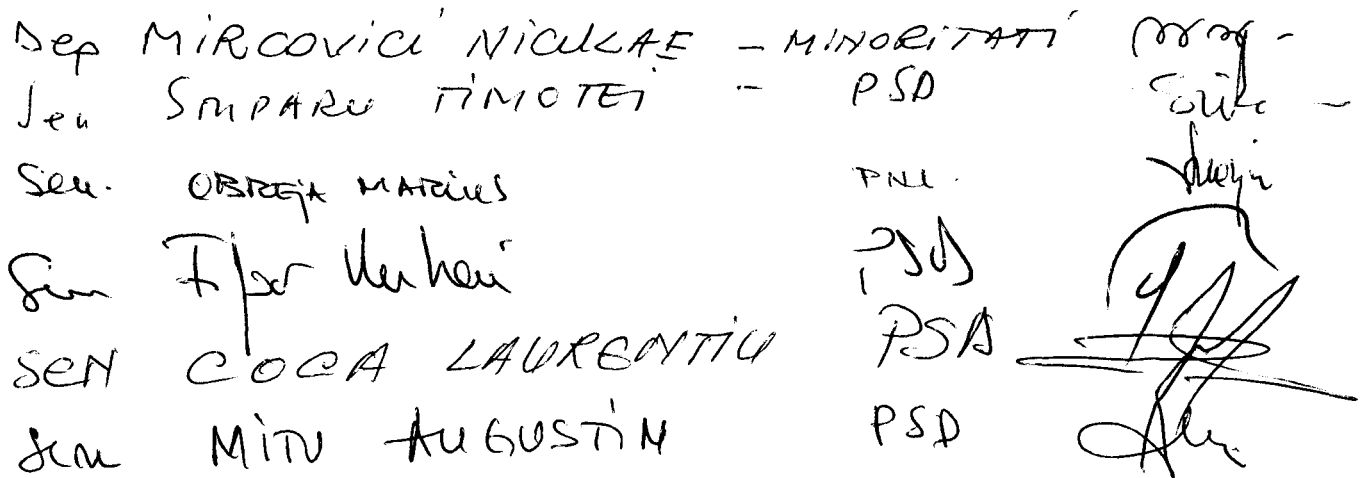 Dep MIRCOVICI NICULAE - MINORITATI
Sen STUPARU TIMOTEI - PSD
Sen. OBREJA MARIUS PNL.
Sen Fifor Mihai PSD
SEN COCA LAURENTIU PSD
Sen MITU AUGUSTIN PSD